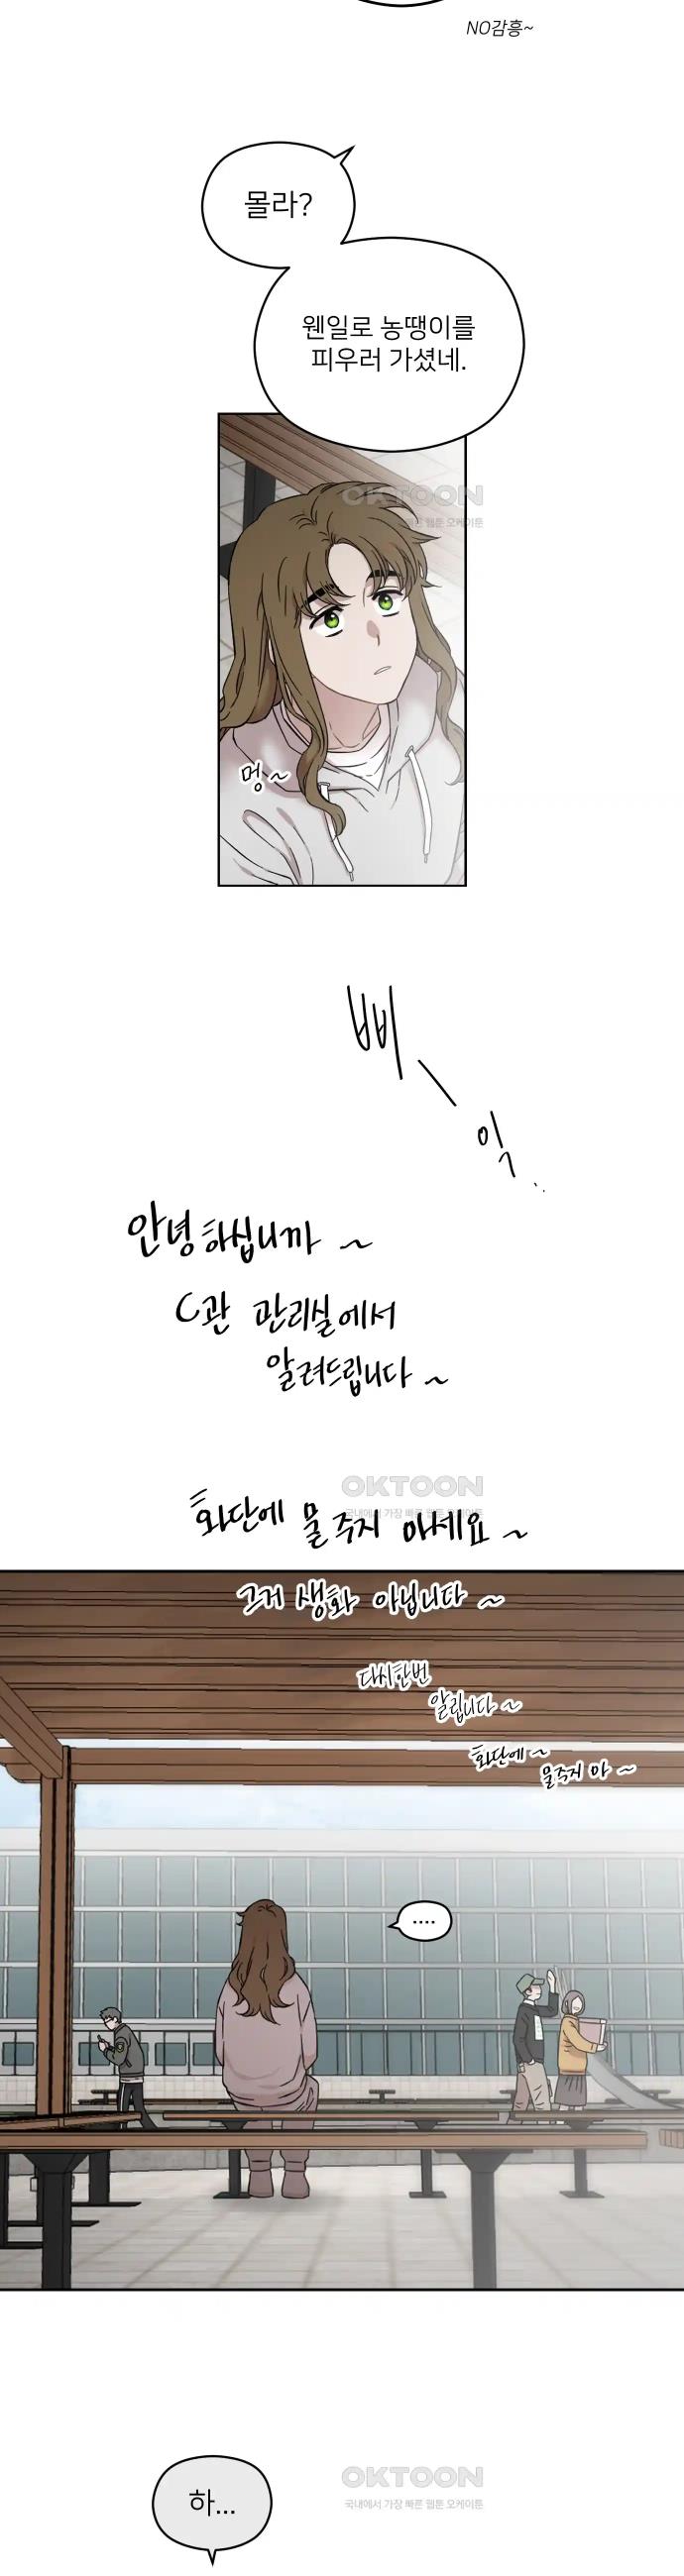 NO감흥~
몰라?
웬일로 농땡이를
피우러 가셨네.
OKTOON
빠른 웹툰 오케이툰
멍~
삐
익
안녕하십니까~
C관 관리실에서
알려드립니다~
OKTOON
국내에서 가장 빠른 웹툰 오케이툰
화단에 물주지 마세요~
그거 생화 아닙니다~
다시한번
알립니다~
화단에~
물주지 마~
....
하...
OKTOON
국내에서 가장 빠른 웹툰 오케이툰